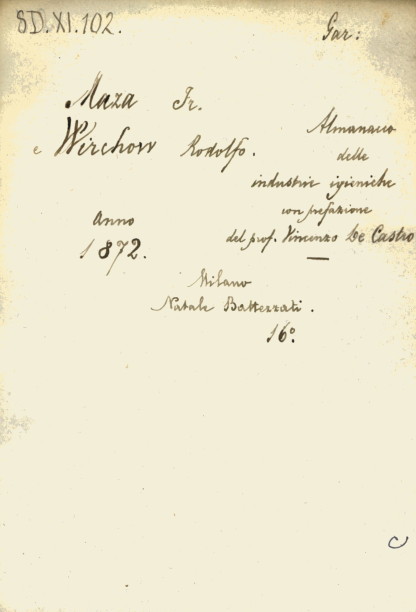 SD.XI.102.
Gar:
Maza Fr.
e Wirchow Rodolfo.
Almanacco
delle
industrie igieniche
con prefazione
del prof. Vincenzo De Castro
Anno
1872.
Milano
Natale Battezzati.
16º.
C